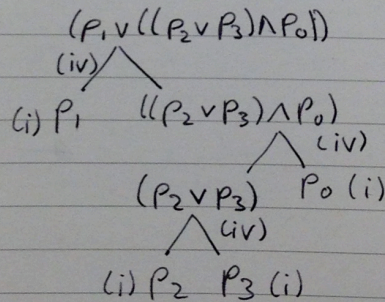 (p₁∨((p₂∨p₃)∧p₀))
(iv)
(i) p₁ ((p₂∨p₃)∧p₀)
(iv)
(p₂∨p₃) p₀ (i)
(iv)
(i) p₂ p₃ (i)